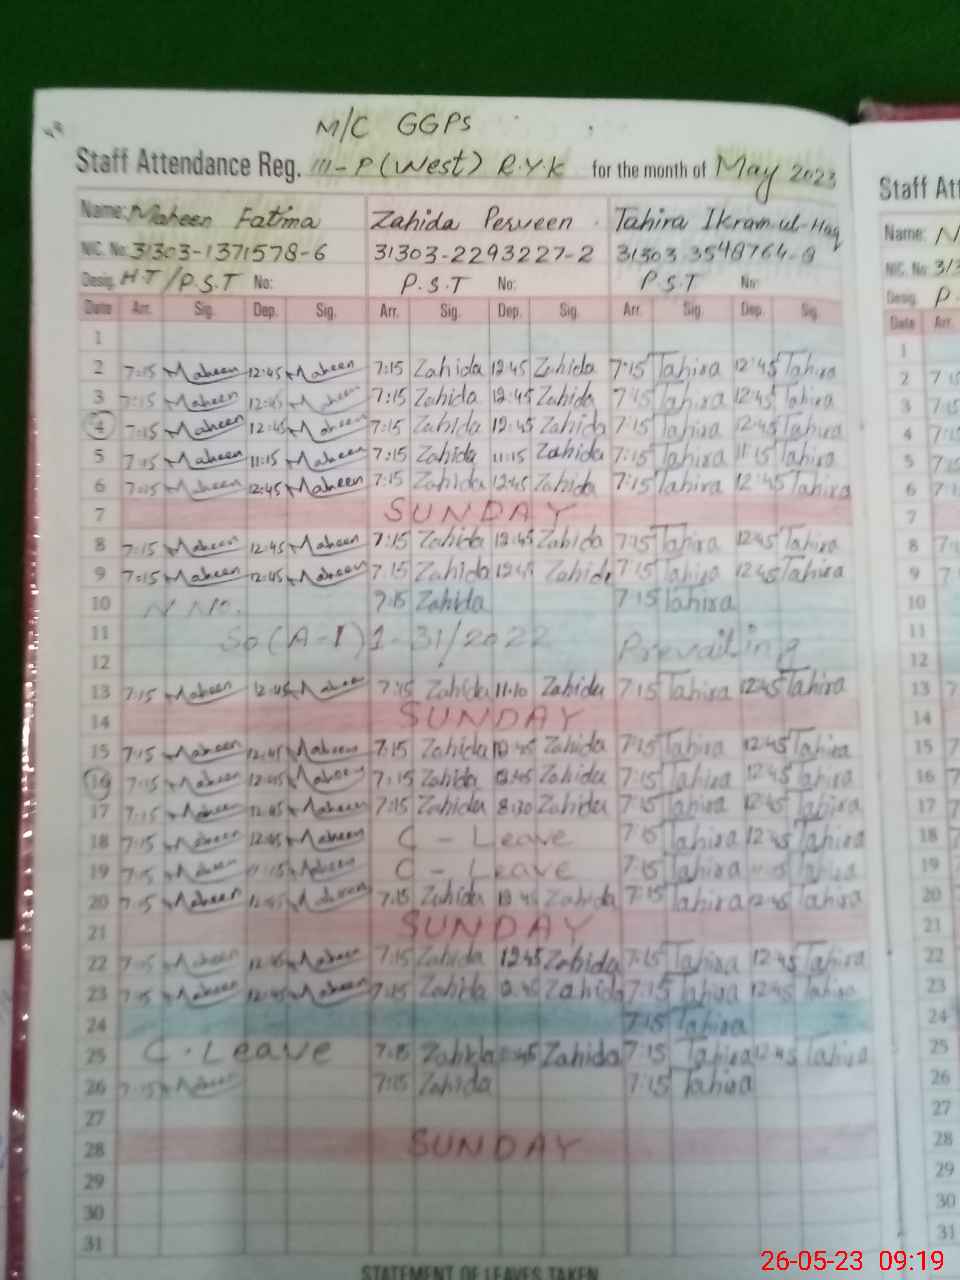 M/C GGPS
Staff Attendance Reg. III-P (West) R.Y.K for the month of May 2023
Name: Maheen Fatima Zahida Perveen Tahira Ikram-ul-Haq
NIC. No. 31303-1371578-6 31303-2293227-2 31303-3548764-8
Desig. HT/P.S.T No: P.S.T No: P.S.T No:
Date Arr. Sig. Dep. Sig. Arr. Sig. Dep. Sig. Arr. Sig. Dep. Sig.
1
2 7:15 Maheen 12:45 Maheen 7:15 Zahida 12:45 Zahida 7:15 Tahira 12:45 Tahira
3 7:15 Maheen 12:45 Maheen 7:15 Zahida 12:45 Zahida 7:15 Tahira 12:45 Tahira
4 7:15 Maheen 12:45 Maheen 7:15 Zahida 12:45 Zahida 7:15 Tahira 12:45 Tahira
5 7:15 Maheen 11:15 Maheen 7:15 Zahida 11:15 Zahida 7:15 Tahira 11:15 Tahira
6 7:15 Maheen 12:45 Maheen 7:15 Zahida 12:45 Zahida 7:15 Tahira 12:45 Tahira
7 SUNDAY
8 7:15 Maheen 12:45 Maheen 7:15 Zahida 12:45 Zahida 7:15 Tahira 12:45 Tahira
9 7:15 Maheen 12:45 Maheen 7:15 Zahida 12:45 Zahida 7:15 Tahira 12:45 Tahira
10 No. 7:15 Zahida 7:15 Tahira
11 So (A-I) 1-31/2022 Prevailing
12
13 7:15 Maheen 12:45 Maheen 7:15 Zahida 11:10 Zahida 7:15 Tahira 12:45 Tahira
14 SUNDAY
15 7:15 Maheen 12:45 Maheen 7:15 Zahida 12:45 Zahida 7:15 Tahira 12:45 Tahira
16 7:15 Maheen 12:45 Maheen 7:15 Zahida 12:45 Zahida 7:15 Tahira 12:45 Tahira
17 7:15 Maheen 12:45 Maheen 7:15 Zahida 8:30 Zahida 7:15 Tahira 12:45 Tahira
18 7:15 Maheen 12:45 Maheen C - Leave 7:15 Tahira 12:45 Tahira
19 7:15 Maheen 11:15 Maheen C - Leave 7:15 Tahira Tahira
20 7:15 Maheen 12:45 Maheen 7:15 Zahida 12:45 Zahida 7:15 Tahira 12:45 Tahira
21 SUNDAY
22 7:15 Maheen 12:45 Maheen 7:15 Zahida 12:45 Zahida 7:15 Tahira 12:45 Tahira
23 7:15 Maheen 12:45 Maheen 7:15 Zahida 12:45 Zahida 7:15 Tahira 12:45 Tahira
24 7:15 Tahira
25 C - Leave 7:15 Zahida 12:45 Zahida 7:15 Tahira 12:45 Tahira
26 7:15 Maheen 7:15 Zahida 7:15 Tahira
27
28 SUNDAY
29
30
31
STATEMENT OF LEAVES TAKEN
Staff Att
Name: N
NIC. No. 313
Desig. P.
Date Arr.
1
2 7:15
3 7:15
4 7:15
5 7:15
6 7:1
7
8 7:
9 7:
10
11
12
13 7
14
15 7
16 7
17 7
18
19
20
21
22
23
24
25
26
27
28
29
30
31
26-05-23 09:19